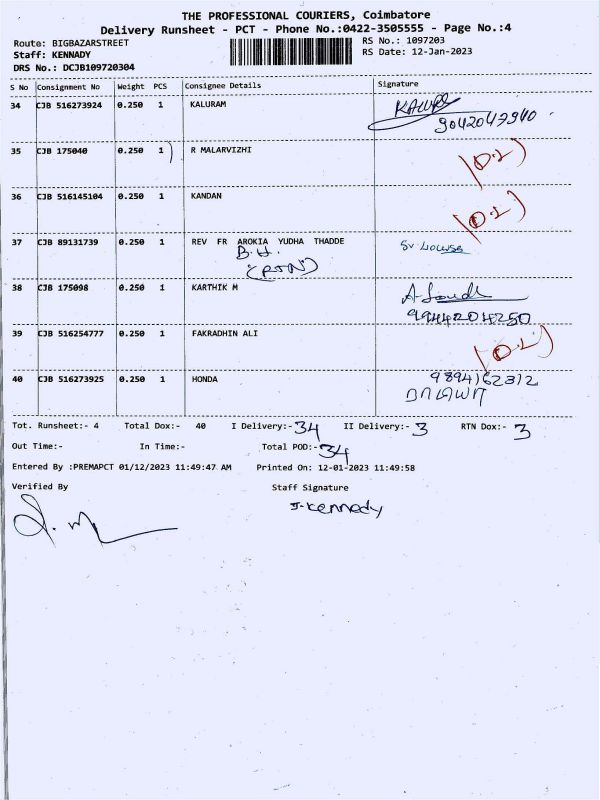 THE PROFESSIONAL COURIERS, Coimbatore
Delivery Runsheet - PCT - Phone No.:0422-3505555 - Page No.:4
Route: BIGBAZARSTREET RS No.: 1097203
Staff: KENNADY RS Date: 12-Jan-2023
DRS No.: DCJB109720304
S No Consignment No Weight PCS Consignee Details Signature
34 CJB 516273924 0.250 1 KALURAM
9042047940
35 CJB 175040 0.250 1 R MALARVIZHI (D.L)
36 CJB 516145104 0.250 1 KANDAN (D.L)
37 CJB 89131739 0.250 1 REV FR AROKIA YUDHA THADDE
B.H.
38 CJB 175098 0.250 1 KARTHIK M
9944204250
39 CJB 516254777 0.250 1 FAKRADHIN ALI (D.L)
40 CJB 516273925 0.250 1 HONDA 9894162312
Tot. Runsheet:- 4 Total Dox:- 40 I Delivery:- 34 II Delivery:- 3 RTN Dox:- 3
Out Time:- In Time:- Total POD:- 34
Entered By :PREMAPCT 01/12/2023 11:49:47 AM Printed On: 12-01-2023 11:49:58
Verified By Staff Signature
J-Kennedy